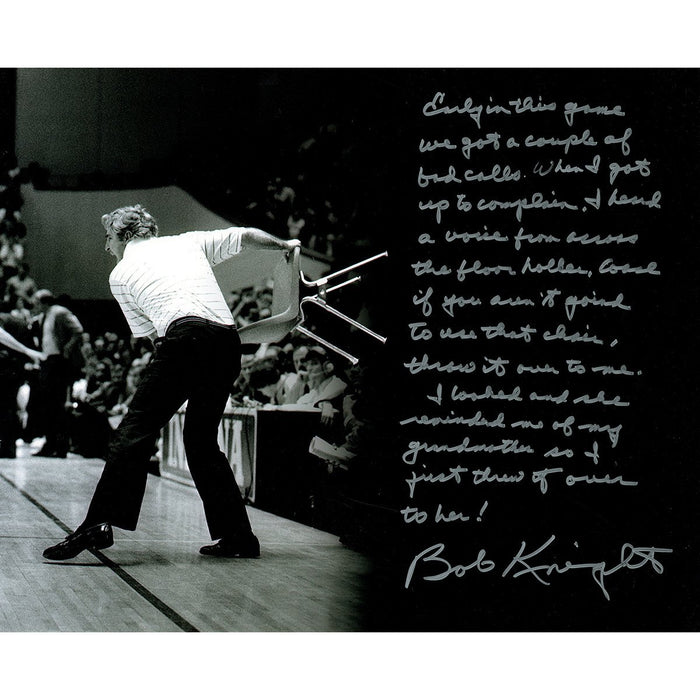 Early in this game
we got a couple of
bad calls. When I got
up to complain, I heard
a voice from across
the floor holler, Coach
if you aren't going
to use that chair,
throw it over to me.
I looked and she
reminded me of my
grandmother so I
just threw it over
to her!
Bob Knight